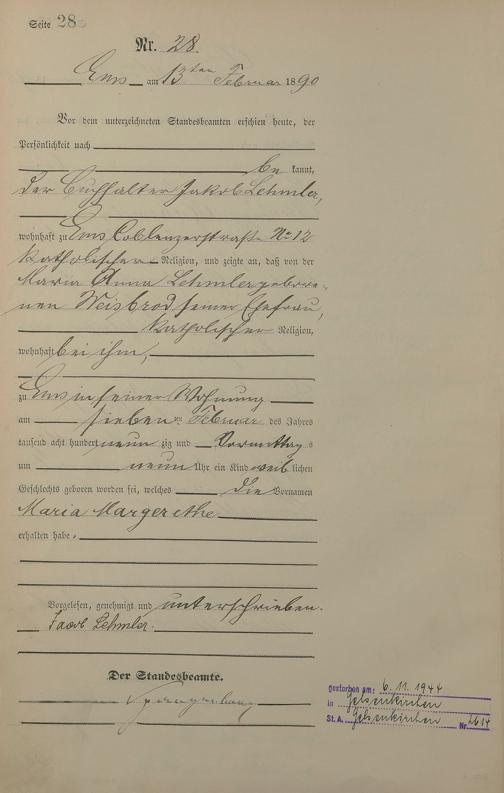 Seite 28
Nr. 28.
Ems am 13ten Februar 1890
Vor dem unterzeichneten Standesbeamten erschien heute, der
Persönlichkeit nach
be kannt,
der Buchhalter Jakob Lehmler,
wohnhaft zu Ems Coblenzerstraße No 12
katholischer Religion, und zeigte an, daß von der
Maria Anna Lehmler gebore-
nen Weisbrod seiner Ehefrau,
katholischer Religion,
wohnhaft bei ihm,
zu Ems in seiner Wohnung
am sieben ten Februar des Jahres
tausend acht hundert neun zig und Vormittag s
um neun Uhr ein Kind weib lichen
Geschlechts geboren worden sei, welches die Vornamen
Maria Margerethe
erhalten habe.
Vorgelesen, genehmigt und unterschrieben.
Jacob Lehmler.
Der Standesbeamte.
gestorben am: 6.11.1944
in Gelsenkirchen
St. A. Gelsenkirchen Nr. 2614